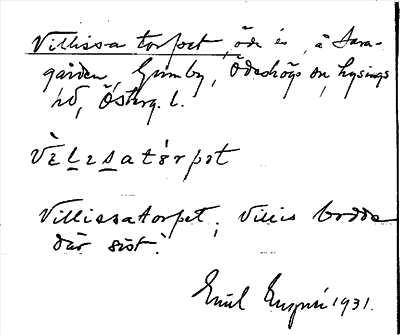 Villissa torpet, öde i s, å Sara-
gården, Grimby, Ödeshögs sn, Lysings
hd, Österg. l.
Vèlesatèrpet
Villissatorpet, Villis bodde
där sist.
Emil 1931.